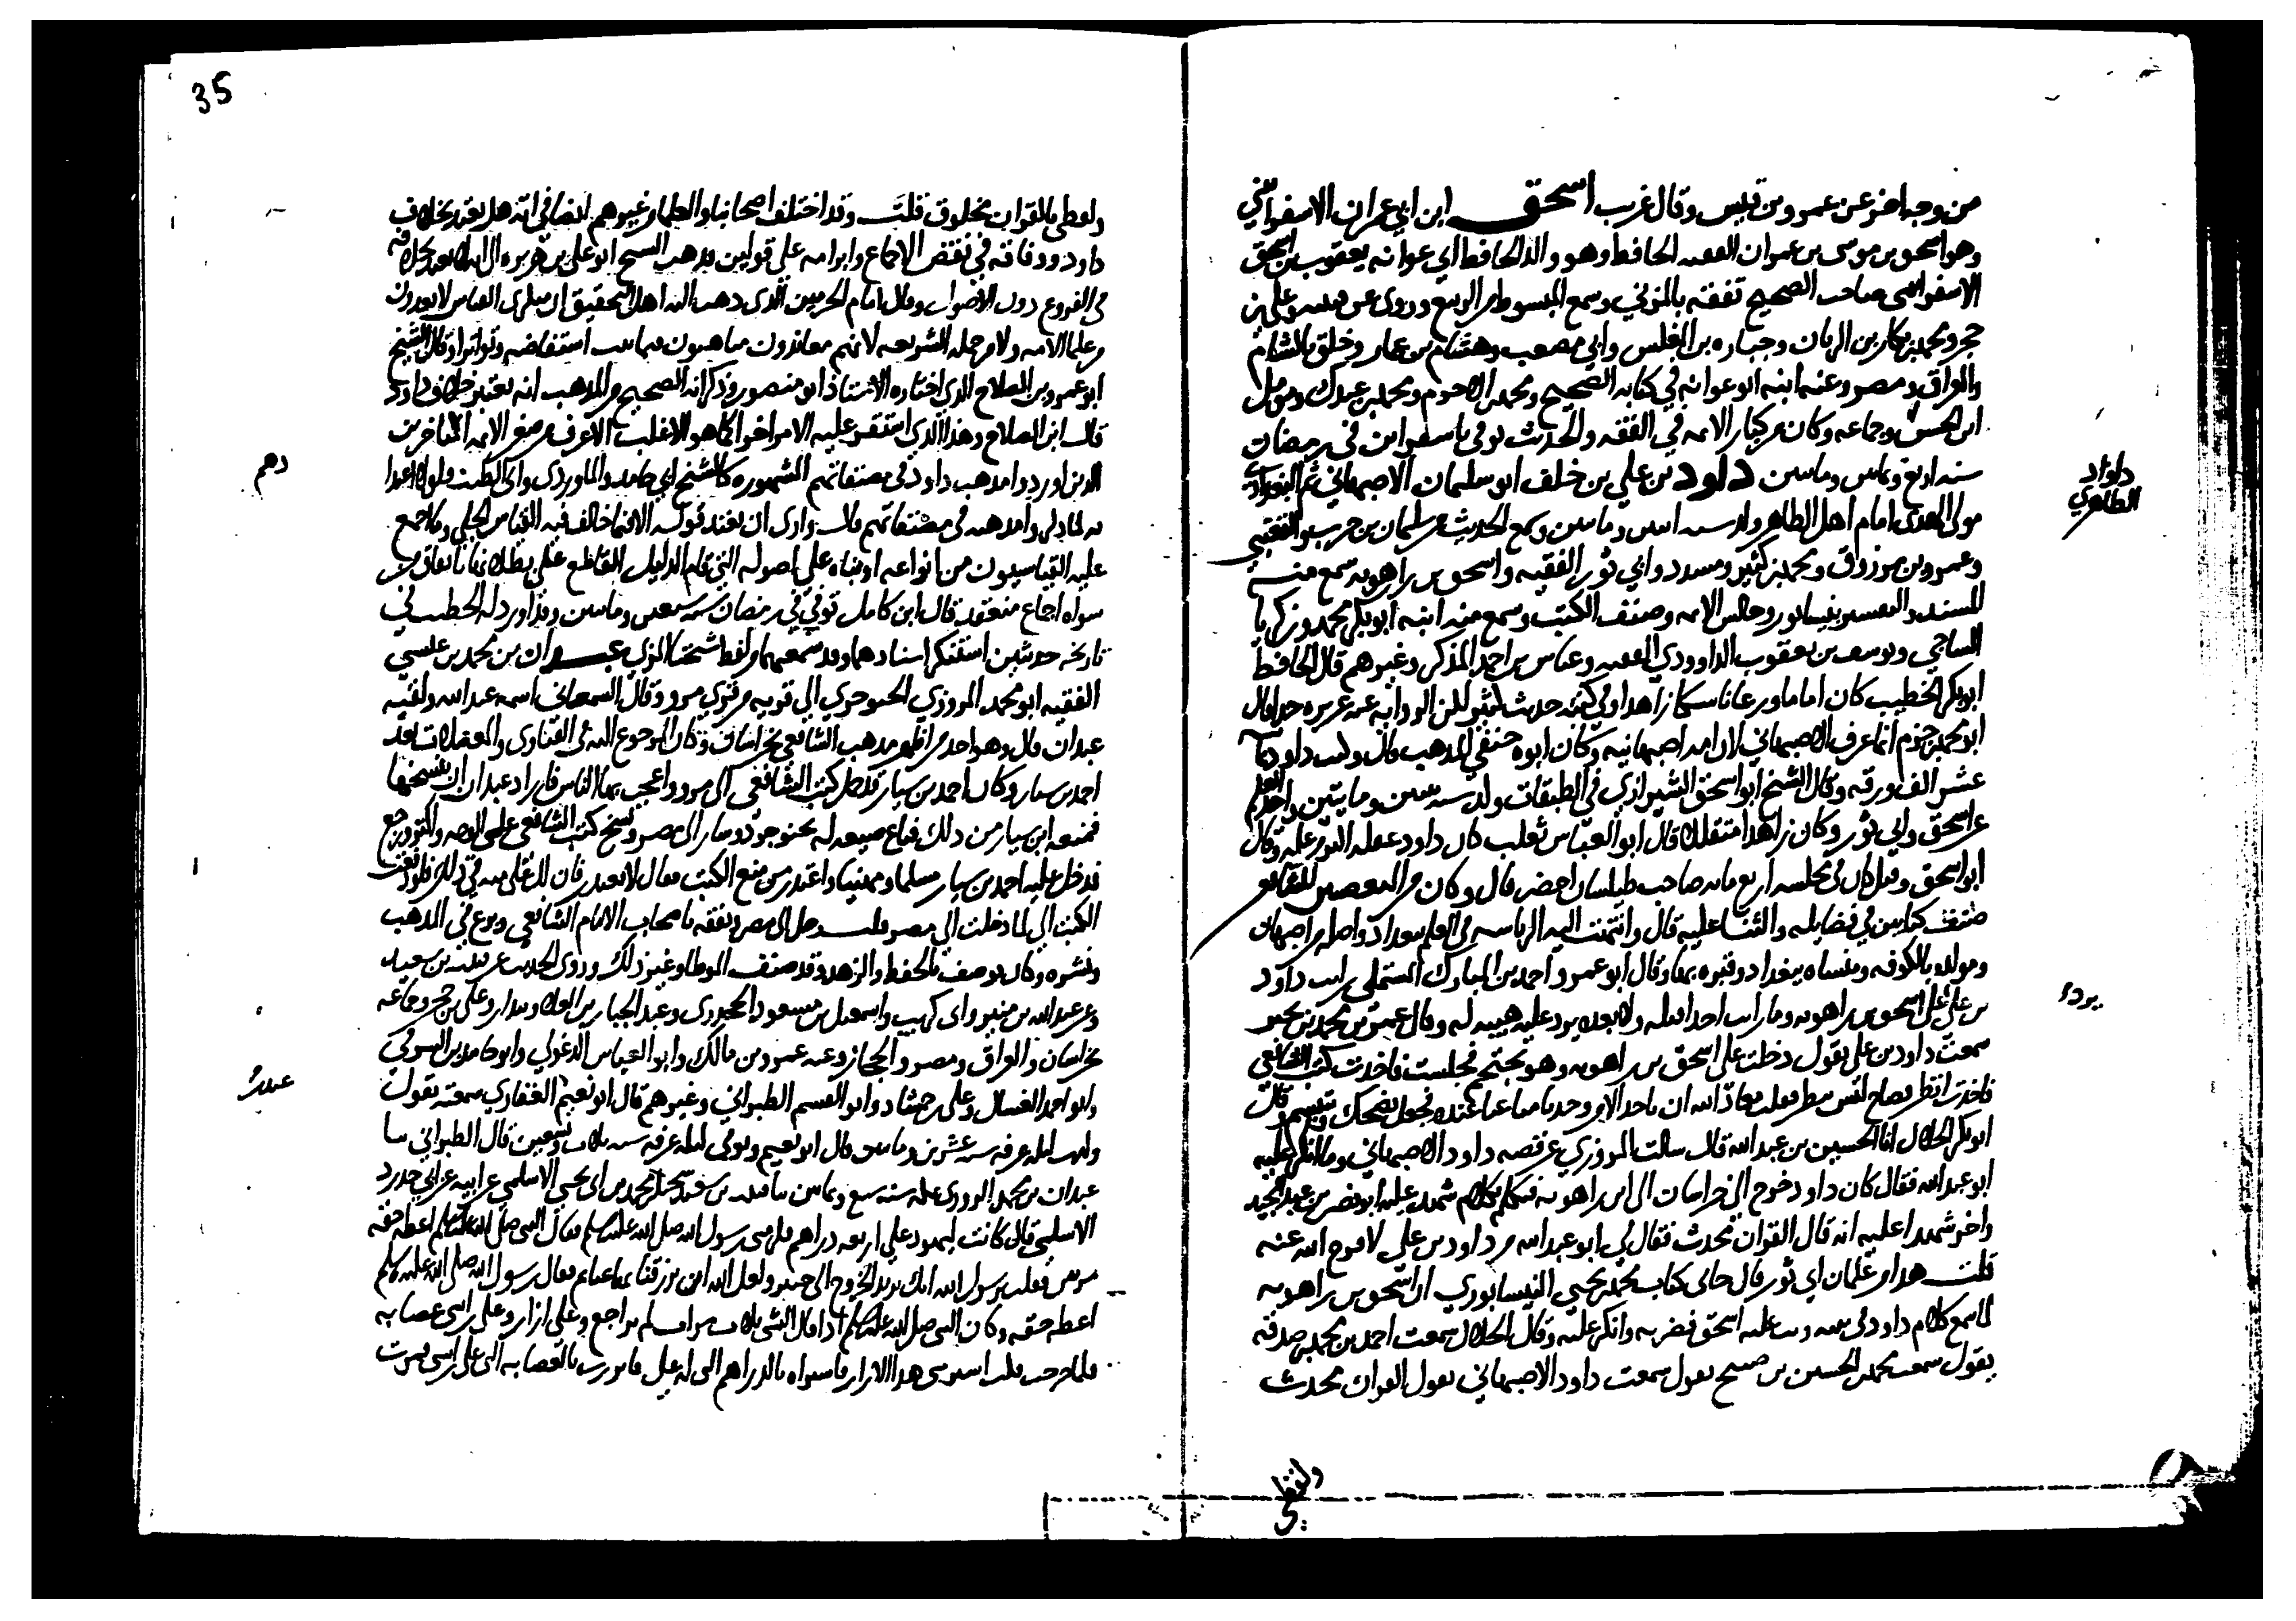 من وجه اخر عن عمرو بن قيس وقال غريب اسحق ابن ابي عمران الاسفرايني
وهو اسحق بن موسى بن عمران الفقيه الحافظ وهو والد الحافظ ابي عوانه يعقوب بن اسحق
الاسفرايني صاحب الصحيح تفقه بالمزني وسمع المبسوط من الربيع وروى عن قتيبه وعلي بن
حجر ومحمد بن بكار بن الريان وجباره بن المغلس وابي مصعب وهشام بن عمار وخلق بالشام
والعراق ومصر وعنه ابنه ابو عوانه في كتابه الصحيح ومحمد بن الاخرم ومحمد بن عبدك ومومل
ابن الحسن وجماعه وكان من كبار الايمه في الفقه والحديث توفي باسفراين في رمضان
سنه اربع وثمانين ومايتين داود بن علي بن خلف ابو سليمان الاصبهاني ثم البغدادي
مولى المهدي امام اهل الظاهر ولد سنه اثنتين ومايتين وسمع الحديث من سليمان بن حرب والقعنبي
وعمرو بن مرزوق ومحمد بن كثير ومسدد وابي ثور الفقيه واسحق بن راهويه سمع منه
المسند والتفسير بنيسابور وجالس الايمه وصنف الكتب وسمع منه ابنه ابو بكر محمد وزكريا
الساجي ويوسف بن يعقوب الداوودي الفقيه وعباس بن احمد المذكر وغيرهم قال الحافظ
ابو بكر الخطيب كان اماما ورعا ناسكا زاهدا وفي كتبه حديث كثير لكن الروايه عنه عزيزه جدا وقال
ابو محمد بن حزم انما عرف بالاصبهاني لان امه اصبهانيه وكان ابوه حنفي المذهب قال وكتب داود ثمانيه
عشر الف ورقه وقال الشيخ ابو اسحق الشيرازي في الطبقات ولد سنه ثنتين ومايتين واخذ العلم
عن اسحق وابي ثور وكان زاهدا متقللا قال ابو العباس ثعلب كان داود عقله اكثر من علمه وقال
ابو اسحق وقيل كان في مجلسه اربع مايه صاحب طيلسان اخضر قال وكان من المتعصبين للشافعي
صنف كتابين في فضايله والثنا عليه قال وانتهت اليه الرياسه في العلم ببغداد واصله من اصبهان
ومولده بالكوفه ومنشاه ببغداد وقبره بها وقال ابو عمرو احمد بن المبارك المستملي رايت داود
بن علي على اسحق بن راهويه وما رايت احدا قبله ولا بعده يرد عليه هيبه له وقال عمر بن محمد بن بجير
سمعت داود بن علي يقول دخلت على اسحق بن راهويه وهو يحتجم فجلست فاخذت كتب الشافعي
فاخذت انظر فصاح ايش تنظر فقلت معاذ الله ان ناخذ الا من وجدنا متاعنا عنده فجعل يضحك ويتبسم وقال
ابو بكر الخلال انا الحسين بن عبد الله قال سالت المروزي عن قصه داود الاصبهاني وما انكر عليه
ابو عبد الله فقال كان داود خرج الى خراسان الى ابن راهويه فتكلم بكلام شهد عليه ابو نصر بن عبد المجيد
واخر شهدا عليه انه قال القران محدث فقال لي ابو عبد الله من داود بن علي لا فرج الله عنه
قلت هذا من غلمان ابي ثور قال جاني كتاب محمد بن يحيى النيسابوري ان اسحق بن راهويه
لما سمع كلام داود في بيته وثب عليه اسحق فضربه وانكر عليه وقال الخلال سمعت احمد بن محمد بن صدقه
يقول سمعت محمد بن الحسين بن صبيح يقول سمعت داود الاصبهاني يقول القران محدث
ولفظي
داواد
الظاهري
يرد
35
ولفظي بالقران مخلوق قلت وقد اختلف اصحابنا والعلما وغيرهم ايضا في انه هل يعتد بخلاف
داود ووفاقه في نقض الاجماع وابرامه على قولين فذهب الشيخ ابو علي بن ابي هريره الى انه لا يعتد بخلافه
في الفروع دون الاصول وقال امام الحرمين الذي ذهب اليه اهل التحقيق ان منكري القياس لا يعدون
من علما الامه ولا من حمله الشريعه لانهم معاندون مباهتون فيما ثبت استفاضه وتواترا وقال الشيخ
ابو عمرو بن الصلاح الذي اختاره الاستاذ ابو منصور وذكر انه الصحيح من المذهب انه يعتبر خلاف داود
قال ابن الصلاح وهذا الذي استقر عليه الامر اخرا كما هو الاغلب الاعرف من صنع الايمه المتاخرين
الذين اوردوا مذهب داود في مصنفاتهم المشهوره كالشيخ ابي حامد والماوردي وابي الطيب فلولا اعتدادهم
به لما ذكروا مذهبه في مصنفاتهم قال وارى ان يعتد قوله الا فيما خالف فيه القياس الجلي وما اجمع
عليه القياسيون من انواعه او بناه على اصوله التي قام الدليل القاطع على بطلانها باتفاق من
سواه اجماع منعقد قال ابن كامل توفي في رمضان سنه سبعين ومايتين وقد اورد له الخطيب في
تاريخه حديثين استنكر اسنادهما وقد سمعتهما من لفظ شيخنا المزي عبدان بن محمد بن عيسى
الفقيه ابو محمد المروزي الجنوجردي الى قريه من قرى مرو وقال السمعاني اسمه عبد الله ولقبه
عبدان قال وهو احد من اظهر مذهب الشافعي بخراسان وكان المرجوع اليه في الفتاوى والمعضلات بعد
احمد بن سيار وكان احمد بن سيار قد حمل كتب الشافعي الى مرو واعجب بها الناس فاراد عبدان ان ينسخها
فمنعه ابن سيار من ذلك فباع ضيعه له بجنوجرد وسار الى مصر ونسخ كتب الشافعي على الوجه واكثر ورجع
فدخل عليه احمد بن سيار مسلما ومهنيا واعتذر من منع الكتب فقال لا تعتذر فان لك علي منه في ذلك فلو دفعت
الكتب الي لما دخلت الى مصر قلت رحل الى مصر وتفقه باصحاب الامام الشافعي وبرع في المذهب
ونشره وكان يوصف بالحفظ والزهد وقد صنف الموطا وغير ذلك وروى الحديث عن قتيبه بن سعيد
وعن عبد الله بن منير وابي كريب واسمعيل بن مسعود الجحدري وعبد الجبار بن العلا وبندار وعلي بن حجر وجماعه
بخراسان والعراق ومصر والحجاز وعنه عمرو بن مالك وابو العباس الدغولي وابو حامد بن الشرقي
وابو احمد العسال وعلي بن حمشاد وابو القسم الطبراني وغيرهم قال ابو نعيم الغفاري سمعته يقول
ولدت ليله عرفه سنه عشرين ومايتين قال ابو نعيم وتوفي ليله عرفه سنه ثلاث وتسعين قال الطبراني ثنا
عبدان بن محمد المروزي بمكه سنه سبع وثمانين ثنا قتيبه بن سعيد ثنا محمد بن ابي يحيى الاسلمي عن ابيه عن ابي حدرد
الاسلمي قال كانت ليهودي علي اربعه دراهم فلزمني رسول الله صلى الله عليه وسلم فقال النبي صلى الله عليه وسلم اعطه حقه
مرتين فقلت يرسول الله انك تريد الخروج الى خيبر ولعل الله ان يرزقنا بها غنايم فقال رسول الله صلى الله عليه وسلم
اعطه حقه وكان النبي صلى الله عليه وسلم اذا قال الشي ثلاث مرات لم يراجع وعلي ازار وعلى راسي عصابه
فلما خرجت قلت اشتر مني هذا الازار فاشتراه بالدراهم التي له علي فاتزرت بالعصابه التي على راسي فمرت
دهم
عبدان